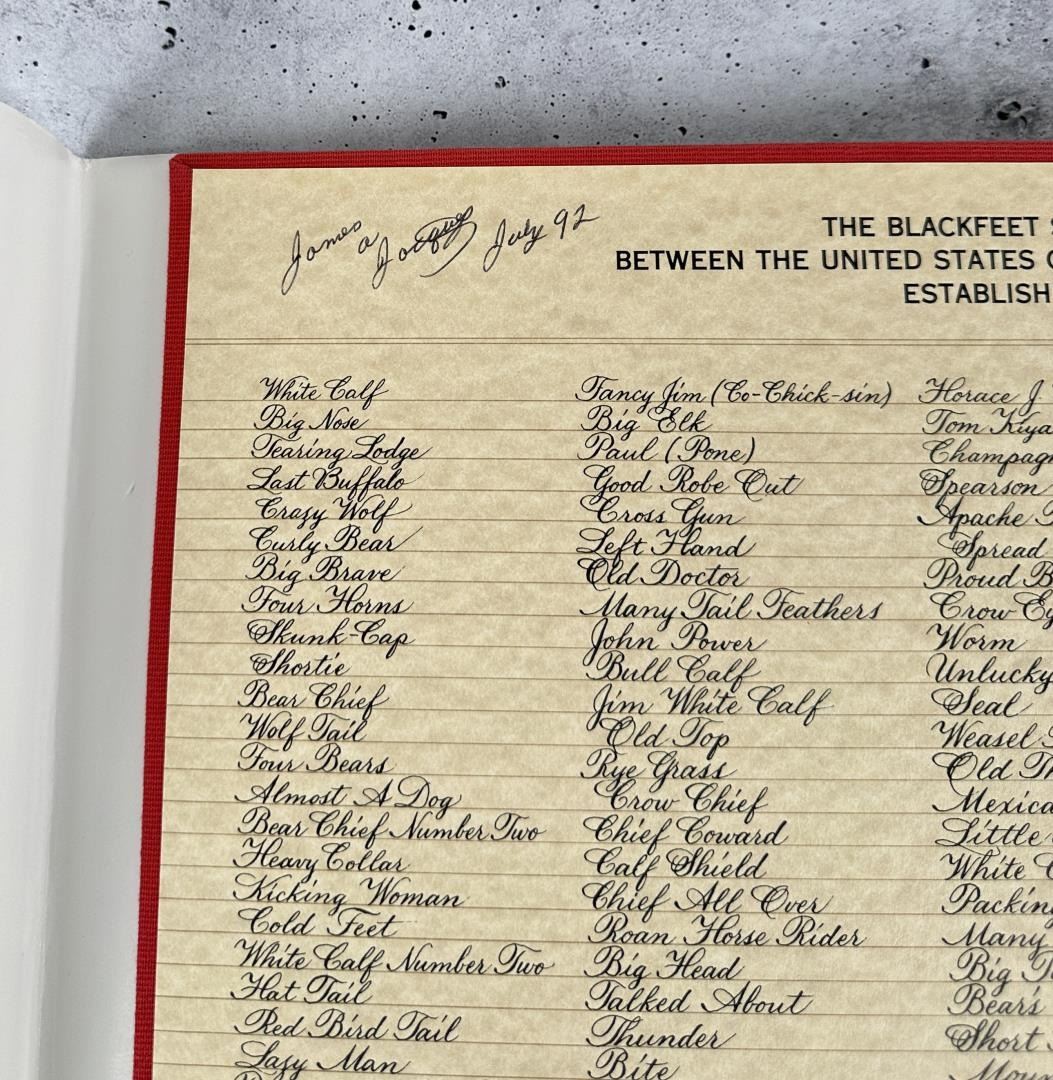 James a Jacques July 92
THE BLACKFEET
BETWEEN THE UNITED STATES
ESTABLISH
White Calf
Big Nose
Tearing Lodge
Last Buffalo
Crazy Wolf
Curly Bear
Big Brave
Four Horns
Skunk-Cap
Shortie
Bear Chief
Wolf Tail
Four Bears
Almost A Dog
Bear Chief Number Two
Heavy Collar
Kicking Woman
Cold Feet
White Calf Number Two
Hat Tail
Red Bird Tail
Lazy Man
Fancy Jim (Co-Chick-sin)
Big Elk
Paul (Pone)
Good Robe Out
Cross Gun
Left Hand
Old Doctor
Many Tail Feathers
John Power
Bull Calf
Jim White Calf
Old Top
Rye Grass
Crow Chief
Chief Coward
Calf Shield
Chief All Over
Roan Horse Rider
Big Head
Talked About
Thunder
Bite
Horace J
Tom Kiya
Champagn
Spearson
Apache
Spread
Proud B
Crow Eg
Worm
Unlucky
Seal
Weasel
Old Th
Mexica
Little
White C
Packing
Many
Big
Bear's
Short
Moun